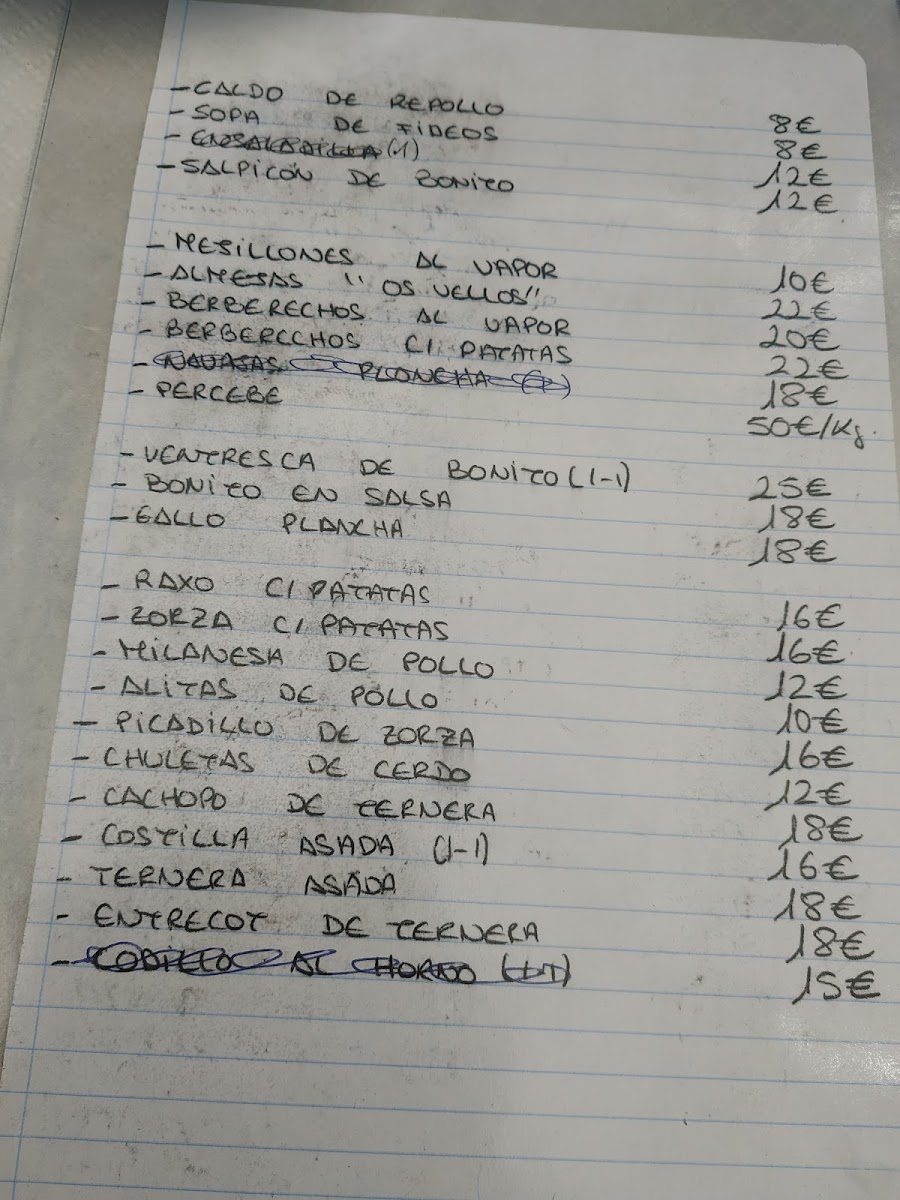 - CALDO DE REPOLLO 8€
- SOPA DE FIDEOS 8€
- ENSALADILLA (1) 12€
- SALPICÓN DE BONITO 12€
- MEJILLONES AL VAPOR 10€
- ALMEJAS "OS VELLOS" 22€
- BERBERECHOS AL VAPOR 20€
- BERBERECHOS C/ PATATAS 22€
- NAVAJAS PLANCHA 18€
- PERCEBE 50€/Kg.
- VENTRESCA DE BONITO (1-1) 25€
- BONITO EN SALSA 18€
- GALLO PLANCHA 18€
- RAXO C/ PATATAS 16€
- ZORZA C/ PATATAS 16€
- MILANESA DE POLLO 12€
- ALITAS DE POLLO 10€
- PICADILLO DE ZORZA 16€
- CHULETAS DE CERDO 12€
- CACHOPO DE TERNERA 18€
- COSTILLA ASADA (1-1) 16€
- TERNERA ASADA 18€
- ENTRECOT DE TERNERA 18€
- CODILLO AL HORNO 15€